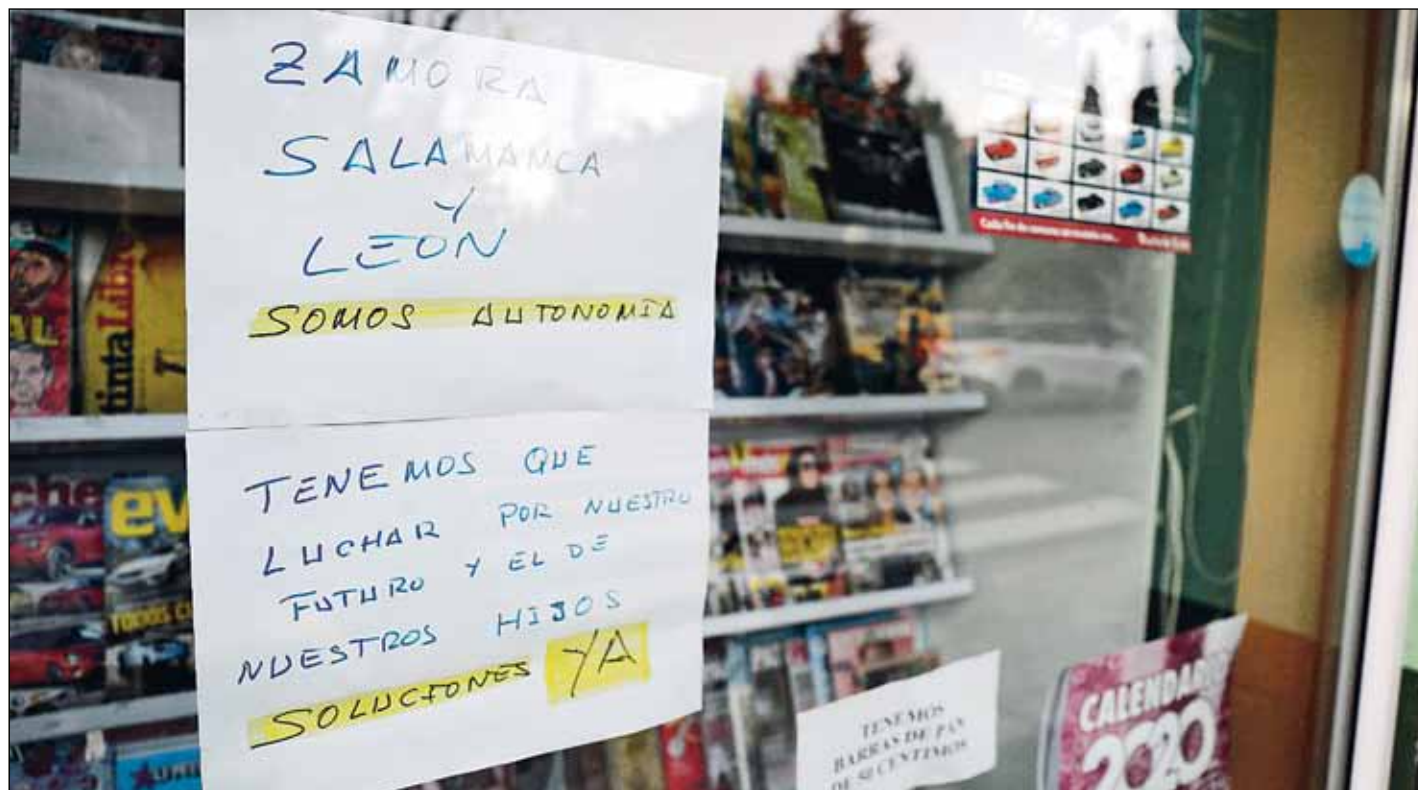 ZAMORA
SALAMANCA
Y
LEON
SOMOS AUTONOMÍA
TENEMOS QUE
LUCHAR POR NUESTRO
FUTURO Y EL DE
NUESTROS HIJOS
SOLUCIONES YA
tintaLibre
AL
che
ev
TODOS
TENEMOS
BARRAS DE PAN
DE 50 CENTIMOS
CALENDARIO
2020